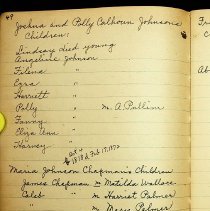 49
Joshua and Polly Calhoun Johnsons
Children:
Lindsay died young
Angeline Johnson
Filena "
Ezra "
Harriett "
Polly " m. A. Pullin
Fanny "
Eliza Ann "
Harvey "
Maria Johnson Chapman's Children
James Chapman m Matilda Wallace
Caleb " m Harriet Palmer
m Mary Palmer